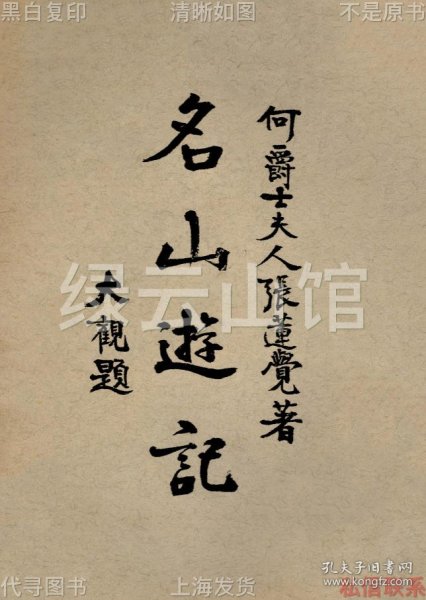 黑白复印
清晰如图
不是原书
何爵士夫人張蓮覺著
名山遊記
大觀題
绿云山馆
孔夫子旧书网
www.kongfz.com
代寻图书
上海发货
私信联系